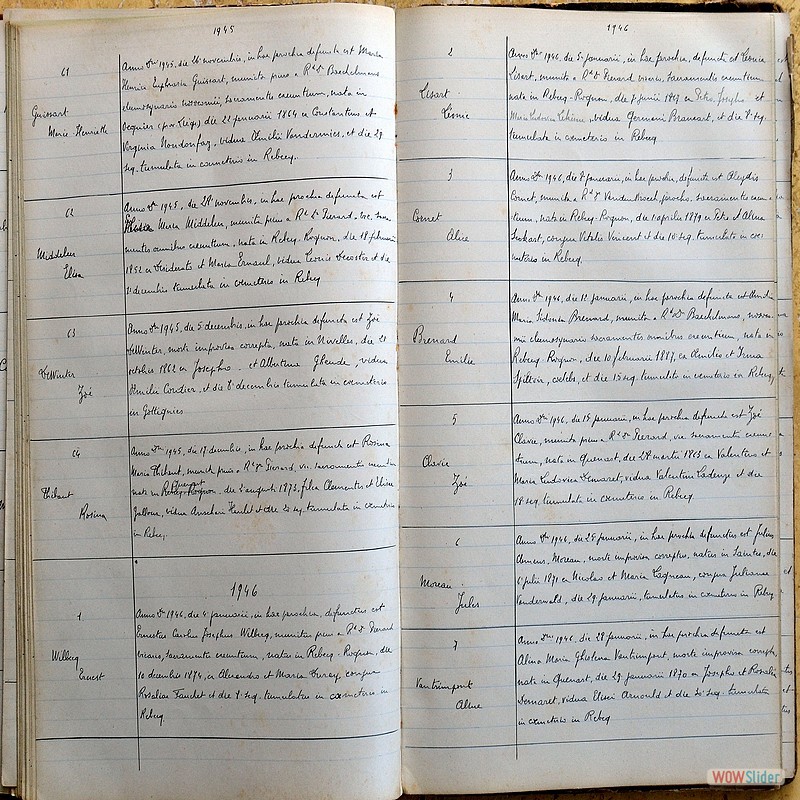 1945
61
Guissart
Marie-Henriette
Anno Dni 1945, die 26 novembris, in hac parochia defuncta est Maria
Henrica Euphrasia Guissart, munita prius a Rdo Do Baeckelmans
elemosynario nosocomii, sacramentis exeuntium, nata in
Ocquier (prov Liège) die 22 januarii 1864 ex Constantino et
Virginia, vidua, et die 29
seq. tumulata in coemeterio in Rebecq.
62
Middelen
Elisa
Anno Dni 1945, die 28 novembris, in hac parochia defuncta est
Maria Middelen, munita prius a Rdo Do Pierard, vic., sacra-
mentis omnibus exeuntium, nata in Rebecq-Rognon, die 18 februarii
1852 ex Desiderato et Maria Ernaul, vidua Decoster et die
1 decembris tumulata in coemeterio in Rebecq
63
DeWinter
Zoé
Anno Dni 1945, die 5 decembris, in hac parochia defuncta est Zoé
DeWinter, morte improvisa correpta, nata in Nivelles, die 21
octobris 1862 ex Josepho et Albertina, vidua
Emilii Cordier, et die 8 decembris tumulata in coemeterio
in
64
Thibaut
Rosina
Anno Dni 1945, die 17 decembris, in hac parochia defuncta est Rosina
Maria Thibaut, munita prius a Rdo Do Pierard, vic. sacramentis exeuntium
Quenast
nata in Rebecq-Rognon, die 2 augusti 1873, filia Clementis et
vidua et die 20 seq. tumulata in coemeterio
in Rebecq.
1946
1
Wilbecq
Ernest
Anno Dni 1946, die 4 januarii, in hac parochia, defunctus est
Ernestus Carolus Josephus Wilbecq, munitus prius a Rdo Do Pierard
vicario, sacramentis exeuntium, natus in Rebecq-Rognon, die
10 decembris 1874, ex Alexandro et Maria conjux
Rosaliae et die 8 seq. tumulatus in coemeterio in
Rebecq
1946
2
Lisart
Léonie
Anno Dni 1946, die 5 januarii, in hac parochia, defuncta est Leonia
Lisart, munita a Rdo Do Pierard vicario, sacramentis exeuntium
nata in Rebecq-Rognon, die 7 junii 1867 ex Petro Josepho et
Maria Ludovica, vidua Germani Brancart, et die 8 seq.
tumulata in coemeterio in Rebecq
3
Cornet
Alice
Anno Dni 1946, die 8 januarii, in hac parochia, defuncta est Aleydis
Cornet, munita a Rdo Do Vandenbosch, parocho, sacramentis exeun-
tium, nata in Rebecq-Rognon, die 1 aprilis 1879 ex et
conjux Vitalis Vincent et die 10 seq. tumulata in coe-
meterio in Rebecq.
4
Brenard
Emilie
Anno Dni 1946, die 12 januarii, in hac parochia defuncta est
Maria Sidonia Brenard, munita a Rdo Do Baeckelmans, nosoco-
mii elemosynario sacramentis omnibus exeuntium, nata in
Rebecq-Rognon, die 10 februarii 1887, ex Emilio et Irma
coelebs, et die 15 seq. tumulata in coemeterio in Rebecq,
5
Clavie
Zoé
Anno Dni 1946, die 15 januarii, in hac parochia defuncta est Zoé
Clavie, munita prius a Rdo Do Pierard, vic. sacramentis exeun-
tium, nata in Quenast, die 28 martii 1863 ex Valentino et
Maria Ludovica Demaret, vidua Valentini et die
18 seq. tumulata in coemeterio in Rebecq
6
Moreau
Jules
Anno Dni 1946, die 25 januarii, in hac parochia defunctus est Julius
Moreau, morte improvisa correptus, natus in Saintes, die
julii 1871 ex Nicolao et Maria conjux Julianae
Vanderwald, die 29 januarii, tumulatus in coemeterio in Rebecq
7
Vantrimpont
Aline
Anno Dni 1946, die 28 januarii, in hac parochia defuncta est
Alina Maria Ghislena Vantrimpont, morte improvisa correpta,
nata in Quenast, die 29 januarii 1870 ex Josepho et Rosalia
Demaret, vidua Elisei Arnould et die 30 seq. tumulata
in coemeterio in Rebecq.
WOWSlider